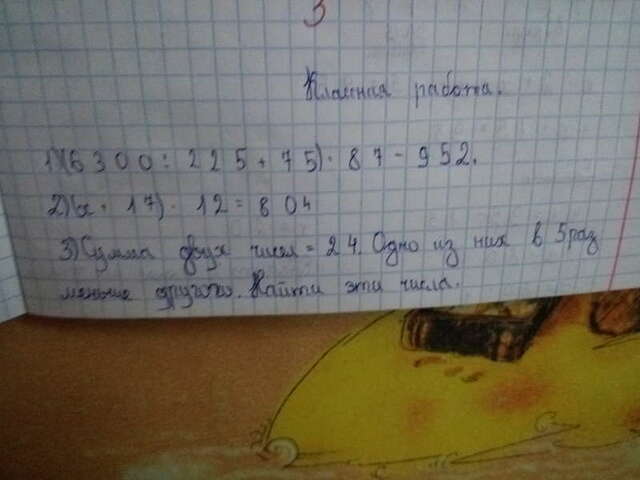 3
Классная работа.
1)(6300:225+75)·87-952.
2)(x+17)·12=804
3)Сумма двух чисел=24. Одно из них в 5раз
меньше другого. Найти эти числа.